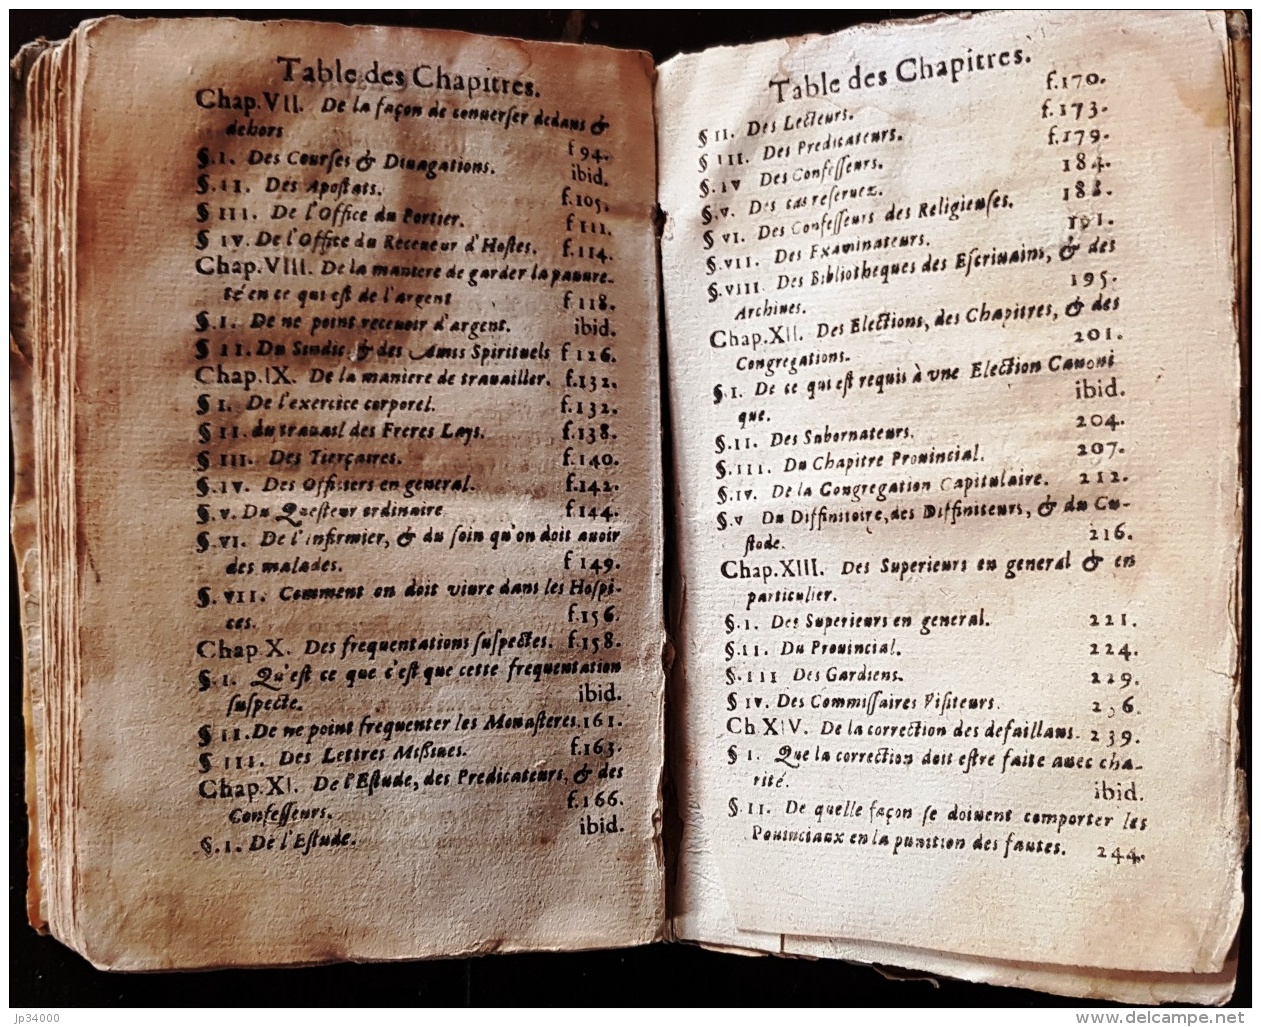 Table des Chapitres.
Chap.VII. De la façon de conuerser dedans &
dehors f 94.
§.I. Des Courses & Diuagations. ibid.
§.II. Des Apostats. f.105.
§ III. De l'Office du Portier. f 111.
§ IV. De l'Office du Receueur d'Hostes. f.114.
Chap.VIII. De la maniere de garder la pauure-
té en ce qui est de l'argent f 118.
§.I. De ne point receuoir d'argent. ibid.
§ II. Du Sindic, & des Amis Spirituels f 126.
Chap.IX. De la maniere de trauailler. f.132.
§ I. De l'exercice corporel. f.132.
§ II. du trauail des Freres Lays. f.138.
§ III. Des Tierçaires. f.140.
§.IV. Des Officiers en general. f.142.
§.V. Du Questeur ordinaire f.144.
§.VI. De l'infirmier, & du soin qu'on doit auoir
des malades. f 149.
§. VII. Comment on doit viure dans les Hospi-
ces. f.156.
Chap.X. Des frequentations suspectes. f.158.
§.I. Qu'est ce que c'est que cette frequentation
suspecte. ibid.
§ II. De ne point frequenter les Monasteres. 161.
§ III. Des Lettres Missiues. f.163.
Chap.XI. De l'Estude, des Predicateurs, & des
Confesseurs. f.166.
§.I. De l'Estude. ibid.
Table des Chapitres.
§ II. Des Lecteurs. f.170.
§ III. Des Predicateurs. f.173.
§.IV Des Confesseurs. f.179.
§.V. Des cas reseruez. 184.
§ VI. Des Confesseurs des Religieuses. 188.
§.VII. Des Examinateurs. 191.
§.VIII. Des Bibliotheques des Escriuains, & des
Archiues. 195.
Chap.XII. Des Elections, des Chapitres, & des
Congregations. 201.
§.I. De ce qui est requis à vne Election Canoni
que. ibid.
§.II. Des Subornateurs. 204.
§.III. Du Chapitre Prouincial. 207.
§.IV. De la Congregation Capitulaire. 212.
§.V Du Diffinitoire, des Diffiniteurs, & du Cu-
stode. 216.
Chap.XIII. Des Superieurs en general & en
particulier.
§.I. Des Superieurs en general. 221.
§.II. Du Prouincial. 224.
§.III Des Gardiens. 229.
§ IV. Des Commissaires Visiteurs.
Ch XIV. De la correction des defaillans. 239.
§ I. Que la correction doit estre faite auec cha-
rité. ibid.
§.II. De quelle façon se doiuent comporter les
Pouinciaux en la punition des fautes. 244.
jp34000
www.delcampe.net